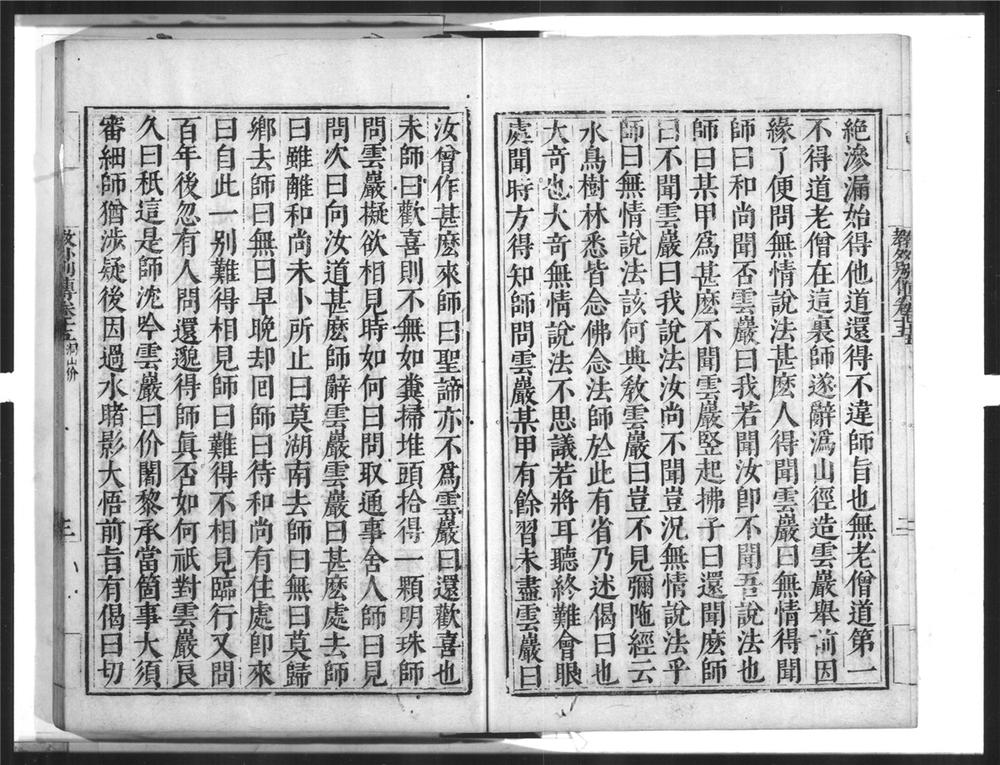 絶滲漏始得他道還得不違師旨也無老僧道第一
不得道老僧在這裏師遂辭潙山徑造雲巖舉前因
緣了便問無情說法甚麽人得聞雲巖曰無情得聞
師曰和尚聞否雲巖曰我若聞汝卽不聞吾說法也
師曰某甲爲甚麽不聞雲巖竪起拂子曰還聞麽師
曰不聞雲巖曰我說法汝尚不聞豈況無情說法乎
師曰無情說法該何典敎雲巖曰豈不見彌陁經云
水鳥樹林悉皆念佛念法師於此有省乃述偈曰也
大奇也大奇無情說法不思議若將耳聽終難會眼
處聞時方得知師問雲巖某甲有餘習未盡雲巖曰
汝曾作甚麽來師曰聖諦亦不爲雲巖曰還歡喜也
未師曰歡喜則不無如糞掃堆頭拾得一顆明珠師
問雲巖擬欲相見時如何曰問取通事舍人師曰見
問次曰向汝道甚麽師辭雲巖雲巖曰甚麽處去師
曰雖離和尚未卜所止曰莫湖南去師曰無曰莫歸
鄉去師曰無曰早晚却回師曰待和尚有住處卽來
曰自此一別難得相見師曰難得不相見臨行又問
百年後忽有人問還邈得師眞否如何祇對雲巖良
久曰秖這是師沈吟雲巖曰价闍黎承當箇事大須
審細師猶涉疑後因過水睹影大悟前旨有偈曰切
敎外別傳卷十五
洞山价
三